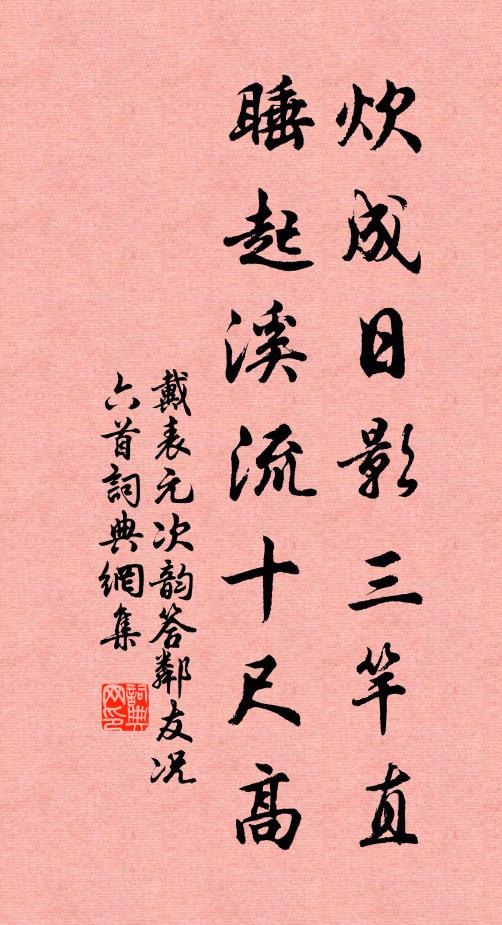 炊成日影三竿直
睡起溪流十尺高
戴表元次韵答鄰友况
六首詞典網集
詞典网印